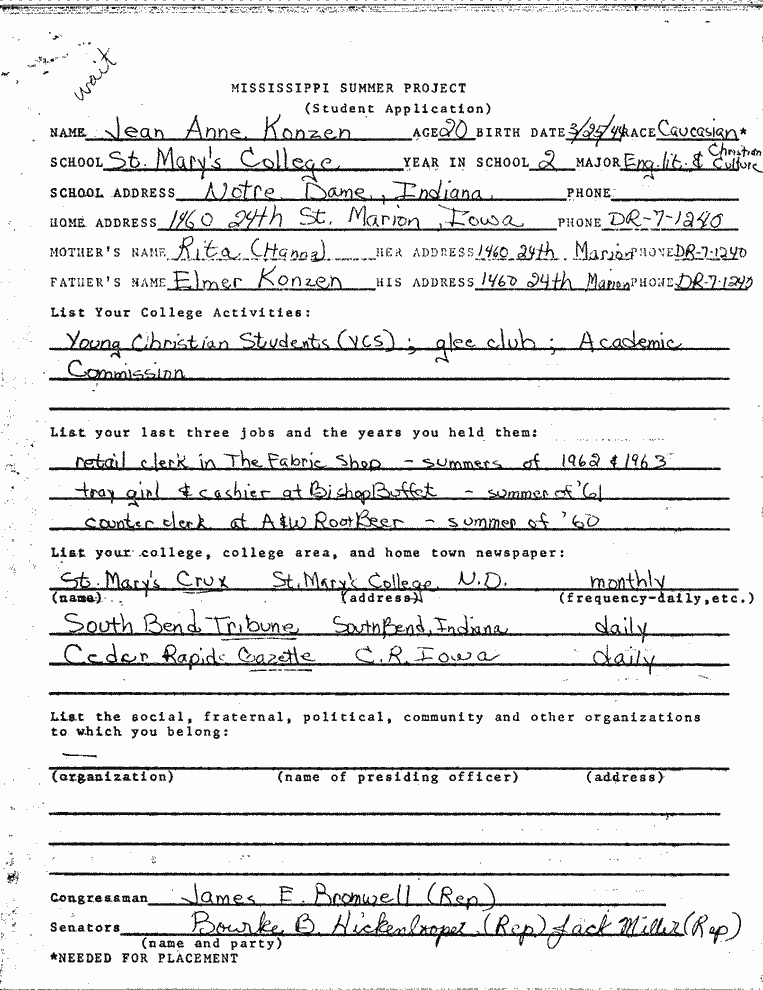 wait
MISSISSIPPI SUMMER PROJECT
(Student Application)
NAME Jean Anne Konzen AGE 20 BIRTH DATE 3/25/44 RACE Caucasian*
SCHOOL St. Mary's College YEAR IN SCHOOL 2 MAJOR Eng. lit. & Christian Culture
SCHOOL ADDRESS Notre Dame, Indiana PHONE
HOME ADDRESS 1460 24th St. Marion, Iowa PHONE DR-7-1240
MOTHER'S NAME Rita (Hanna) HER ADDRESS 1460 24th Marion PHONE DR-7-1240
FATHER'S NAME Elmer Konzen HIS ADDRESS 1460 24th Marion PHONE DR-7-1240
List Your College Activities:
Young Christian Students (YCS); glee club; Academic
Commission
List your last three jobs and the years you held them:
retail clerk in The Fabric Shop - summers of 1962 & 1963
tray girl & cashier at Bishop Buffet - summer of '61
counter clerk at A&W Root Beer - summer of '60
List your college, college area, and home town newspaper:
St. Mary's Crux St. Mary's College, N.D. monthly
(name) (address) (frequency-daily,etc.)
South Bend Tribune South Bend, Indiana daily
Cedar Rapids Gazette C.R. Iowa daily
List the social, fraternal, political, community and other organizations
to which you belong:
—
(organization) (name of presiding officer) (address)
Congressman James E. Bromwell (Rep)
Senators Bourke B. Hickenlooper (Rep) Jack Miller (Rep)
(name and party)
*NEEDED FOR PLACEMENT